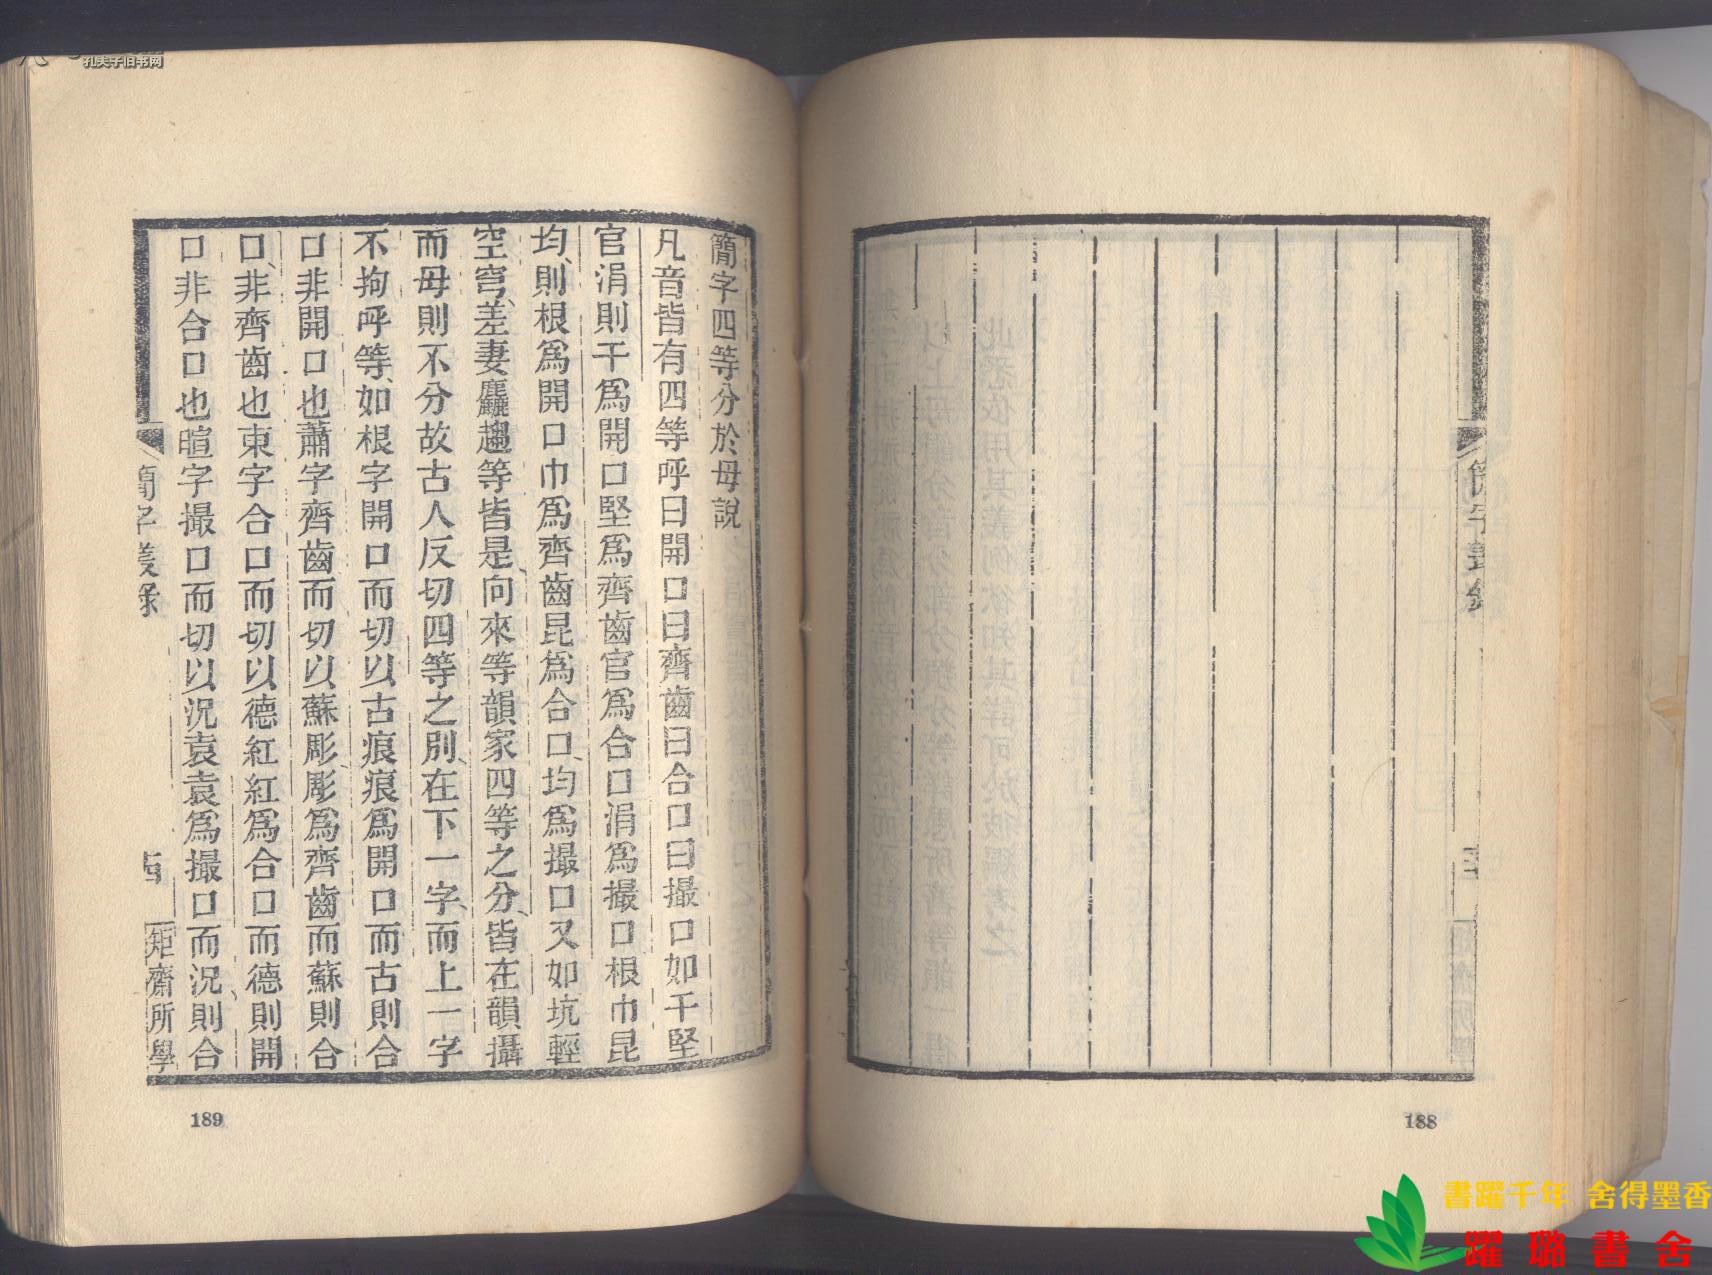 簡字四等分於母說
凡音皆有四等呼曰開口曰齊齒曰合口曰撮口如干堅
官涓則干爲開口堅爲齊齒官爲合口涓爲撮口根巾昆
均、則根爲開口巾爲齊齒昆爲合口、均爲撮口又如坑輕
空穹、差妻麤趨等皆是、向來等韻家四等之分、皆在韻攝
而母則不分故古人反切四等之別、在下一字、而上一字
不拘呼等、如根字開口而切以古痕痕爲開口而古則合
口非開口也蕭字齊齒而切以蘇彫、彫爲齊齒而蘇則合
口、非齊齒也東字合口而切以德紅紅爲合口而德則開
口非合口也暄字撮口而切以況袁袁爲撮口而況則合
簡字叢錄
矩齋所學
189
簡字叢錄
188
孔夫子旧书网
書躍千年 舍得墨香
躍璐書舍